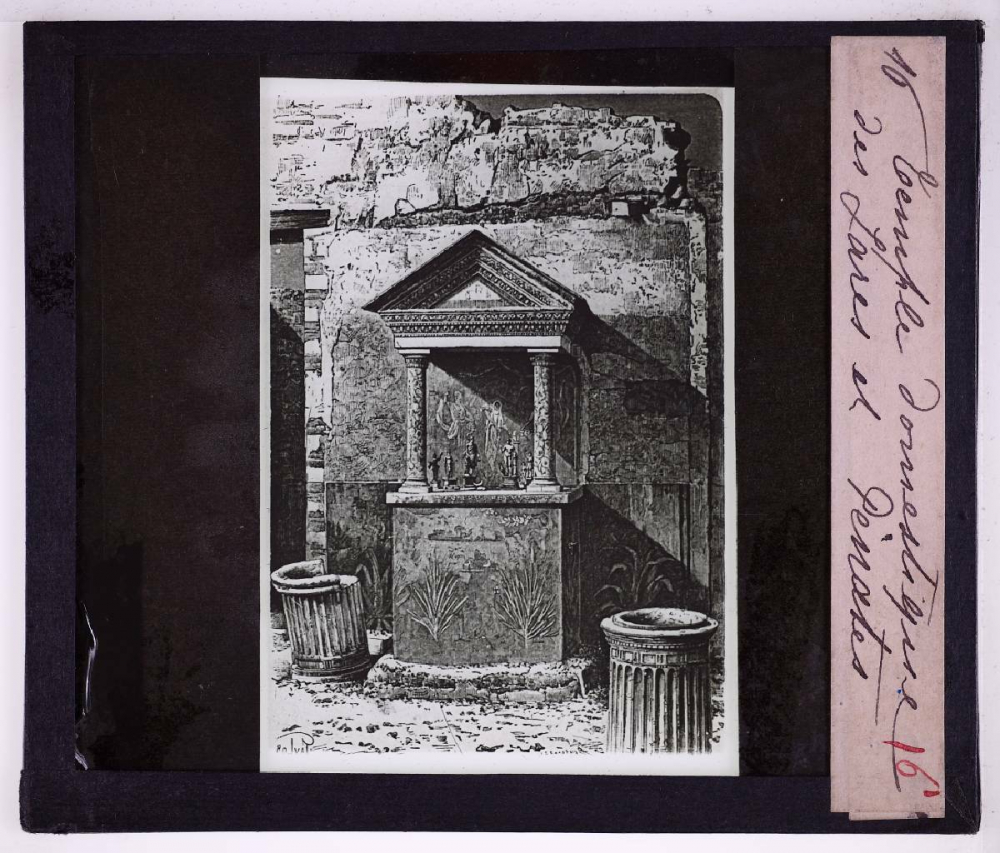 16 Temple domestique 16
des Lares et Pénates